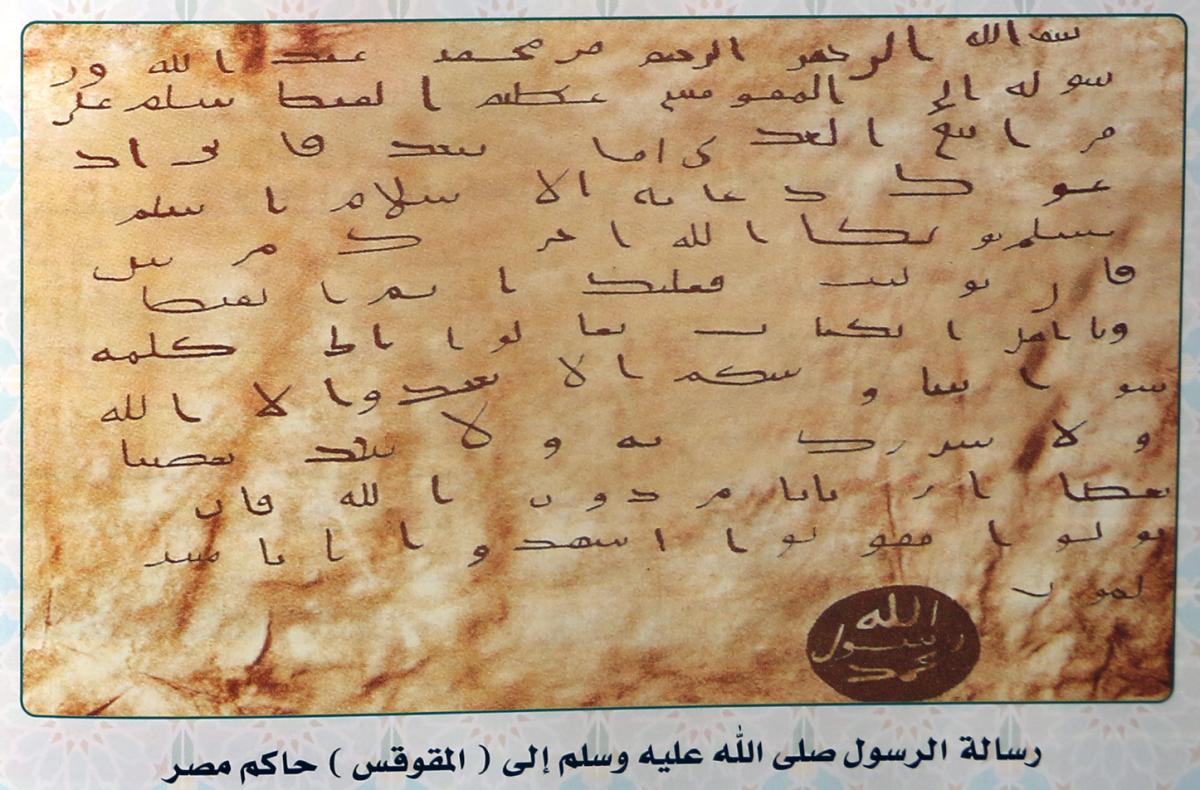 بسم الله الرحمن الرحيم من محمد عبد الله ور
سوله إلى المقوقس عظيم القبط سلم على
من اتبع الهدى اما بعد فانى اد
عوك بدعاية الاسلام اسلم
تسلم يوتك الله اجرك مرتين
فان توليت فعليك اثم القبط
ويا اهل الكتاب تعالوا الى كلمة
سوا بيننا وبينكم الا نعبد الا الله
ولا نشرك به ولا يتخذ بعضنا
بعضا اربابا من دون الله فان
تولوا فقولوا اشهدوا بانا مسـ
لمون
الله
رسول
محمد
رسالة الرسول صلى الله عليه وسلم إلى ( المقوقس ) حاكم مصر